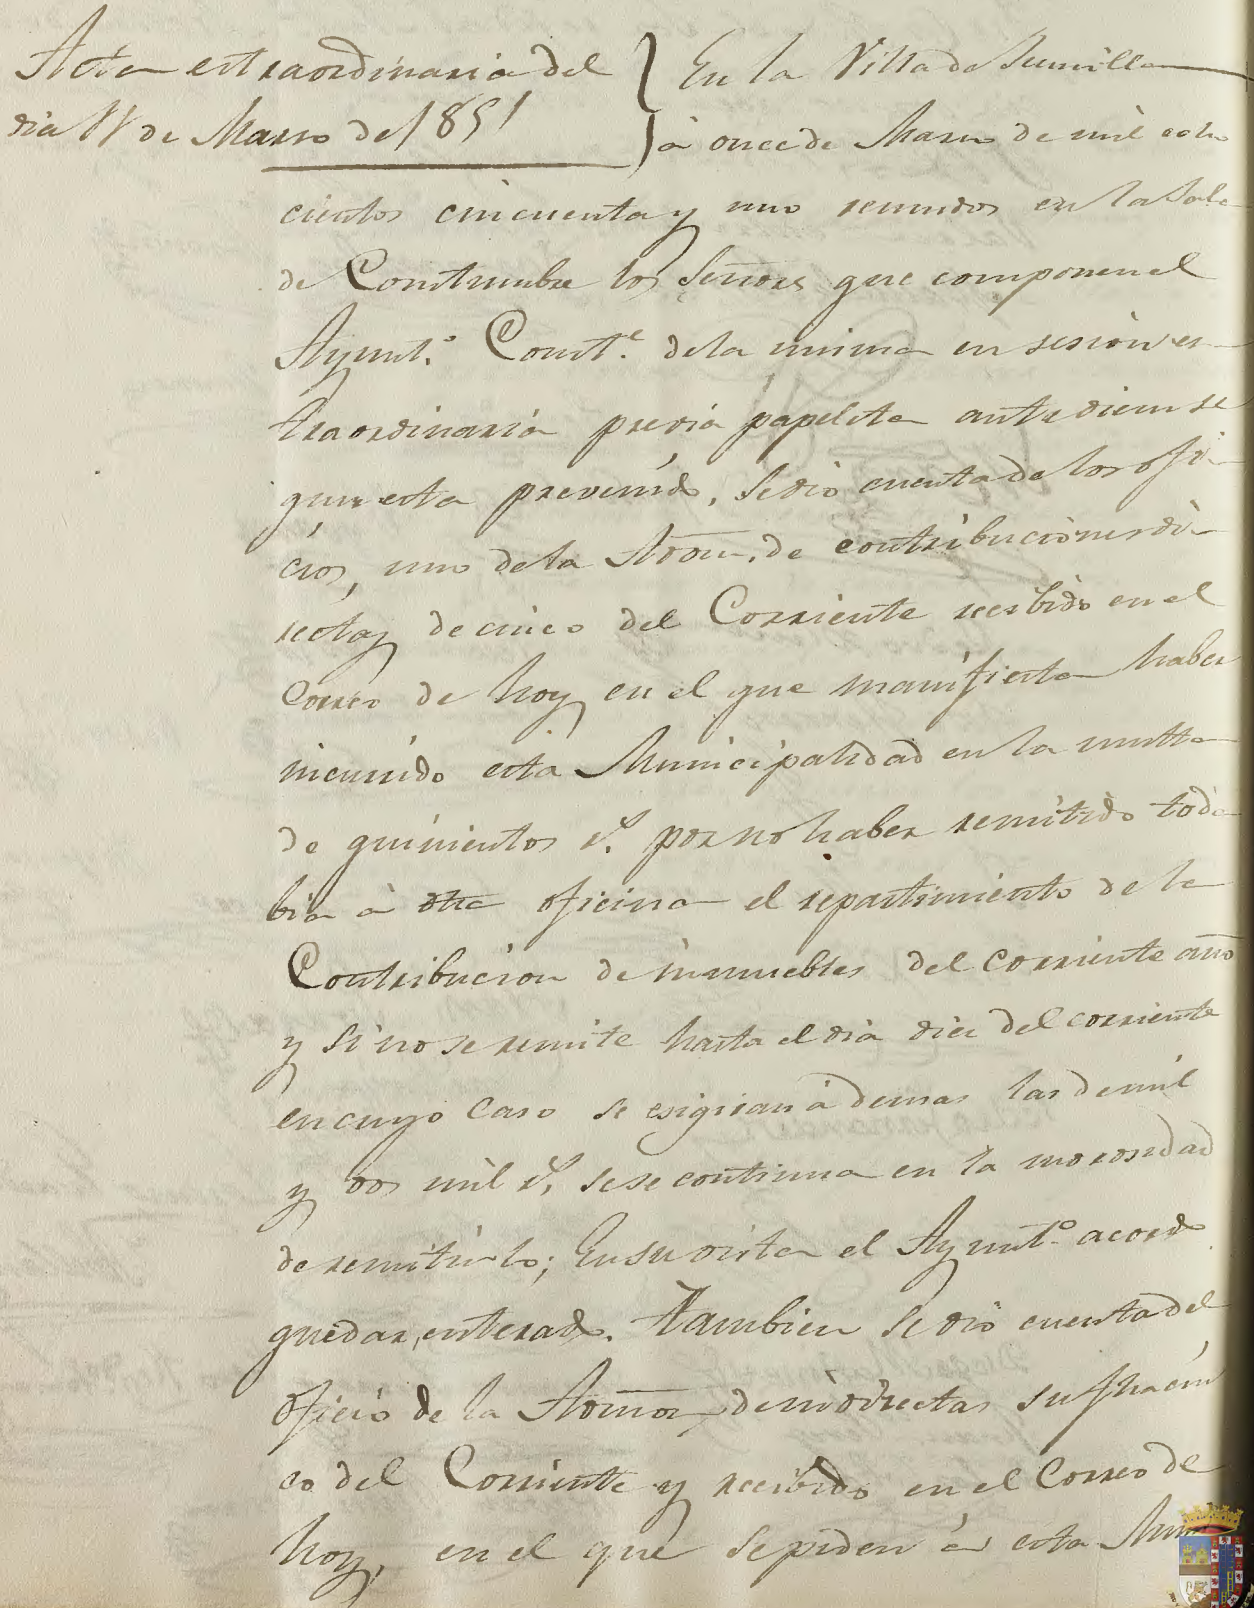 Acta estraordinaria del
dia 11 de Marzo de 1851
En la Villa de Jumilla
á once de Marzo de mil ocho
cientos cincuenta y uno reunidos en la Sala
de Constumbre los Señores que componen el
Ayunt.º Const.l de la misma en sesion es-
traordinaria previa papeleta ante diem se
gun esta prevenido, se dio cuenta de los ofi-
cios, uno de la Admon. de contribuciones di-
rectas de cinco del Corriente recibido en el
Correo de hoy en el que manifiesta haber
incurrido esta Municipalidad en la multa
de quinientos r.s por no haber remitido toda
bia á dha oficina el repartimiento de la
Contribucion de inmuebles del corriente año
y si no se remite hasta el dia diez del corriente
en cuyo caso se esigiran ademas las de mil
y dos mil r.s se se continua en la morosidad
de remitirlo; En su vista el Ayunt.º acordó
quedar enterado. Tambien se dio cuenta del
oficio de la Admon de indirectas su fha cin
co del Corriente y recibido en el Correo de
hoy, en el que se piden á esta Mun